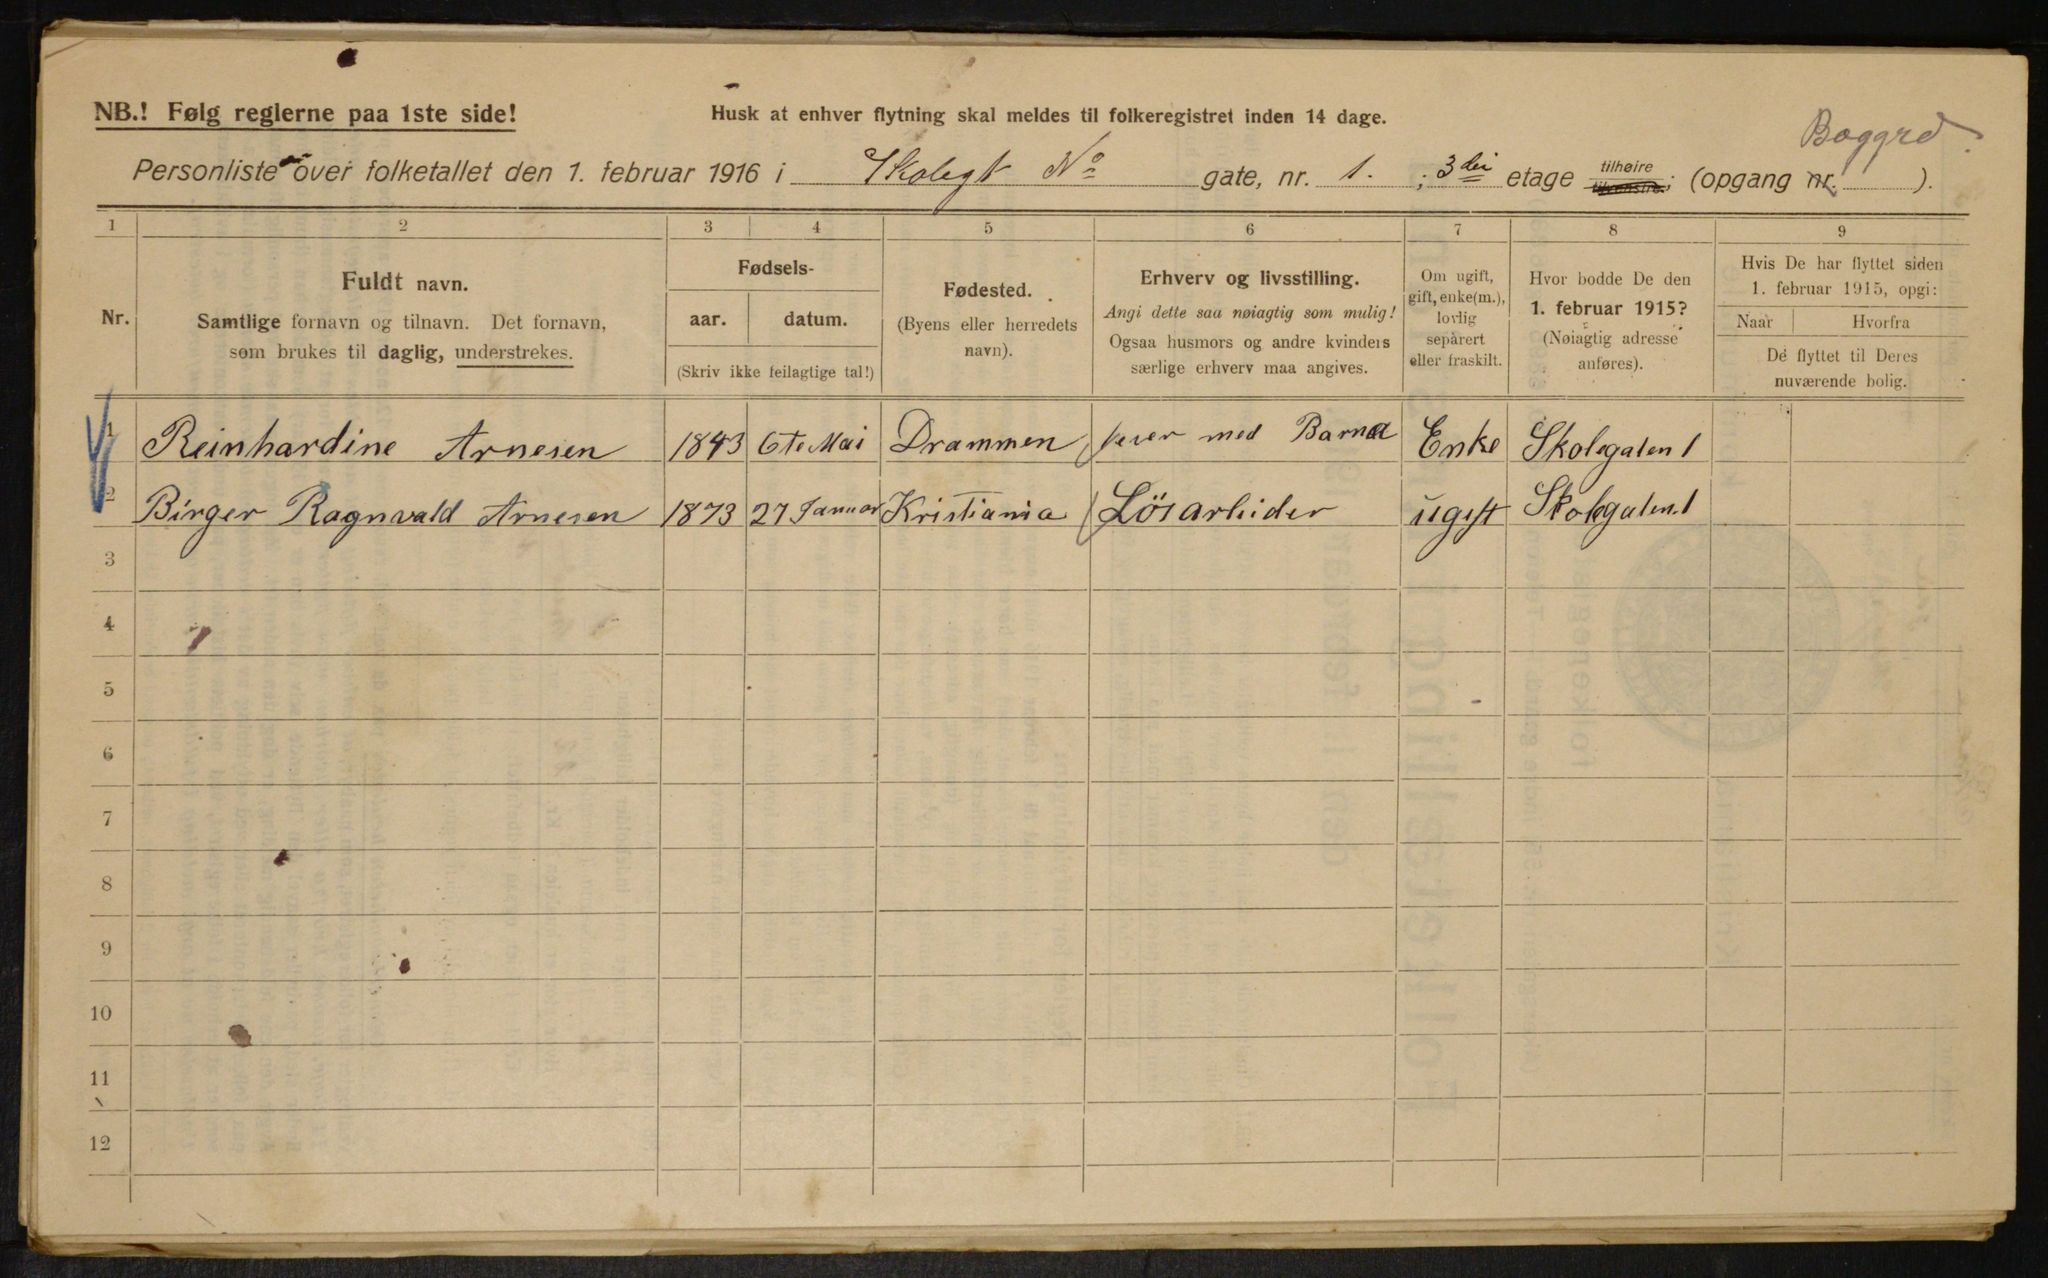 NB.! Følg reglerne paa 1ste side!
Husk at enhver flytning skal meldes til folkeregistret inden 14 dage.
Boggrd.
Personliste over folketallet den 1. februar 1916 i Skolegt No gate, nr. 1. ; 3die etage tilhøire tilvenstre; (opgang nr. ).
1 2 3 4 5 6 7 8 9
Nr.
Fuldt navn.
Samtlige fornavn og tilnavn. Det fornavn,
som brukes til daglig, understrekes.
Fødsels-
aar. datum.
(Skriv ikke feilagtige tal!)
Fødested.
(Byens eller herredets
navn).
Erhverv og livsstilling.
Angi dette saa nøiagtig som mulig!
Ogsaa husmors og andre kvinders
særlige erhverv maa angives.
Om ugift,
gift, enke(m.),
lovlig
separert
eller fraskilt.
Hvor bodde De den
1. februar 1915?
(Nøiagtig adresse
anføres).
Hvis De har flyttet siden
1. februar 1915, opgi:
Naar Hvorfra
De flyttet til Deres
nuværende bolig.
1 Reinhardine Arnesen 1843 6te Mai Drammen lever med Barna Enke Skolegaten 1
2 Birger Ragnvald Arnesen 1873 27 Januar Kristiania Lösarbeider ugift Skolegaten 1
3
4
5
6
7
8
9
10
11
12